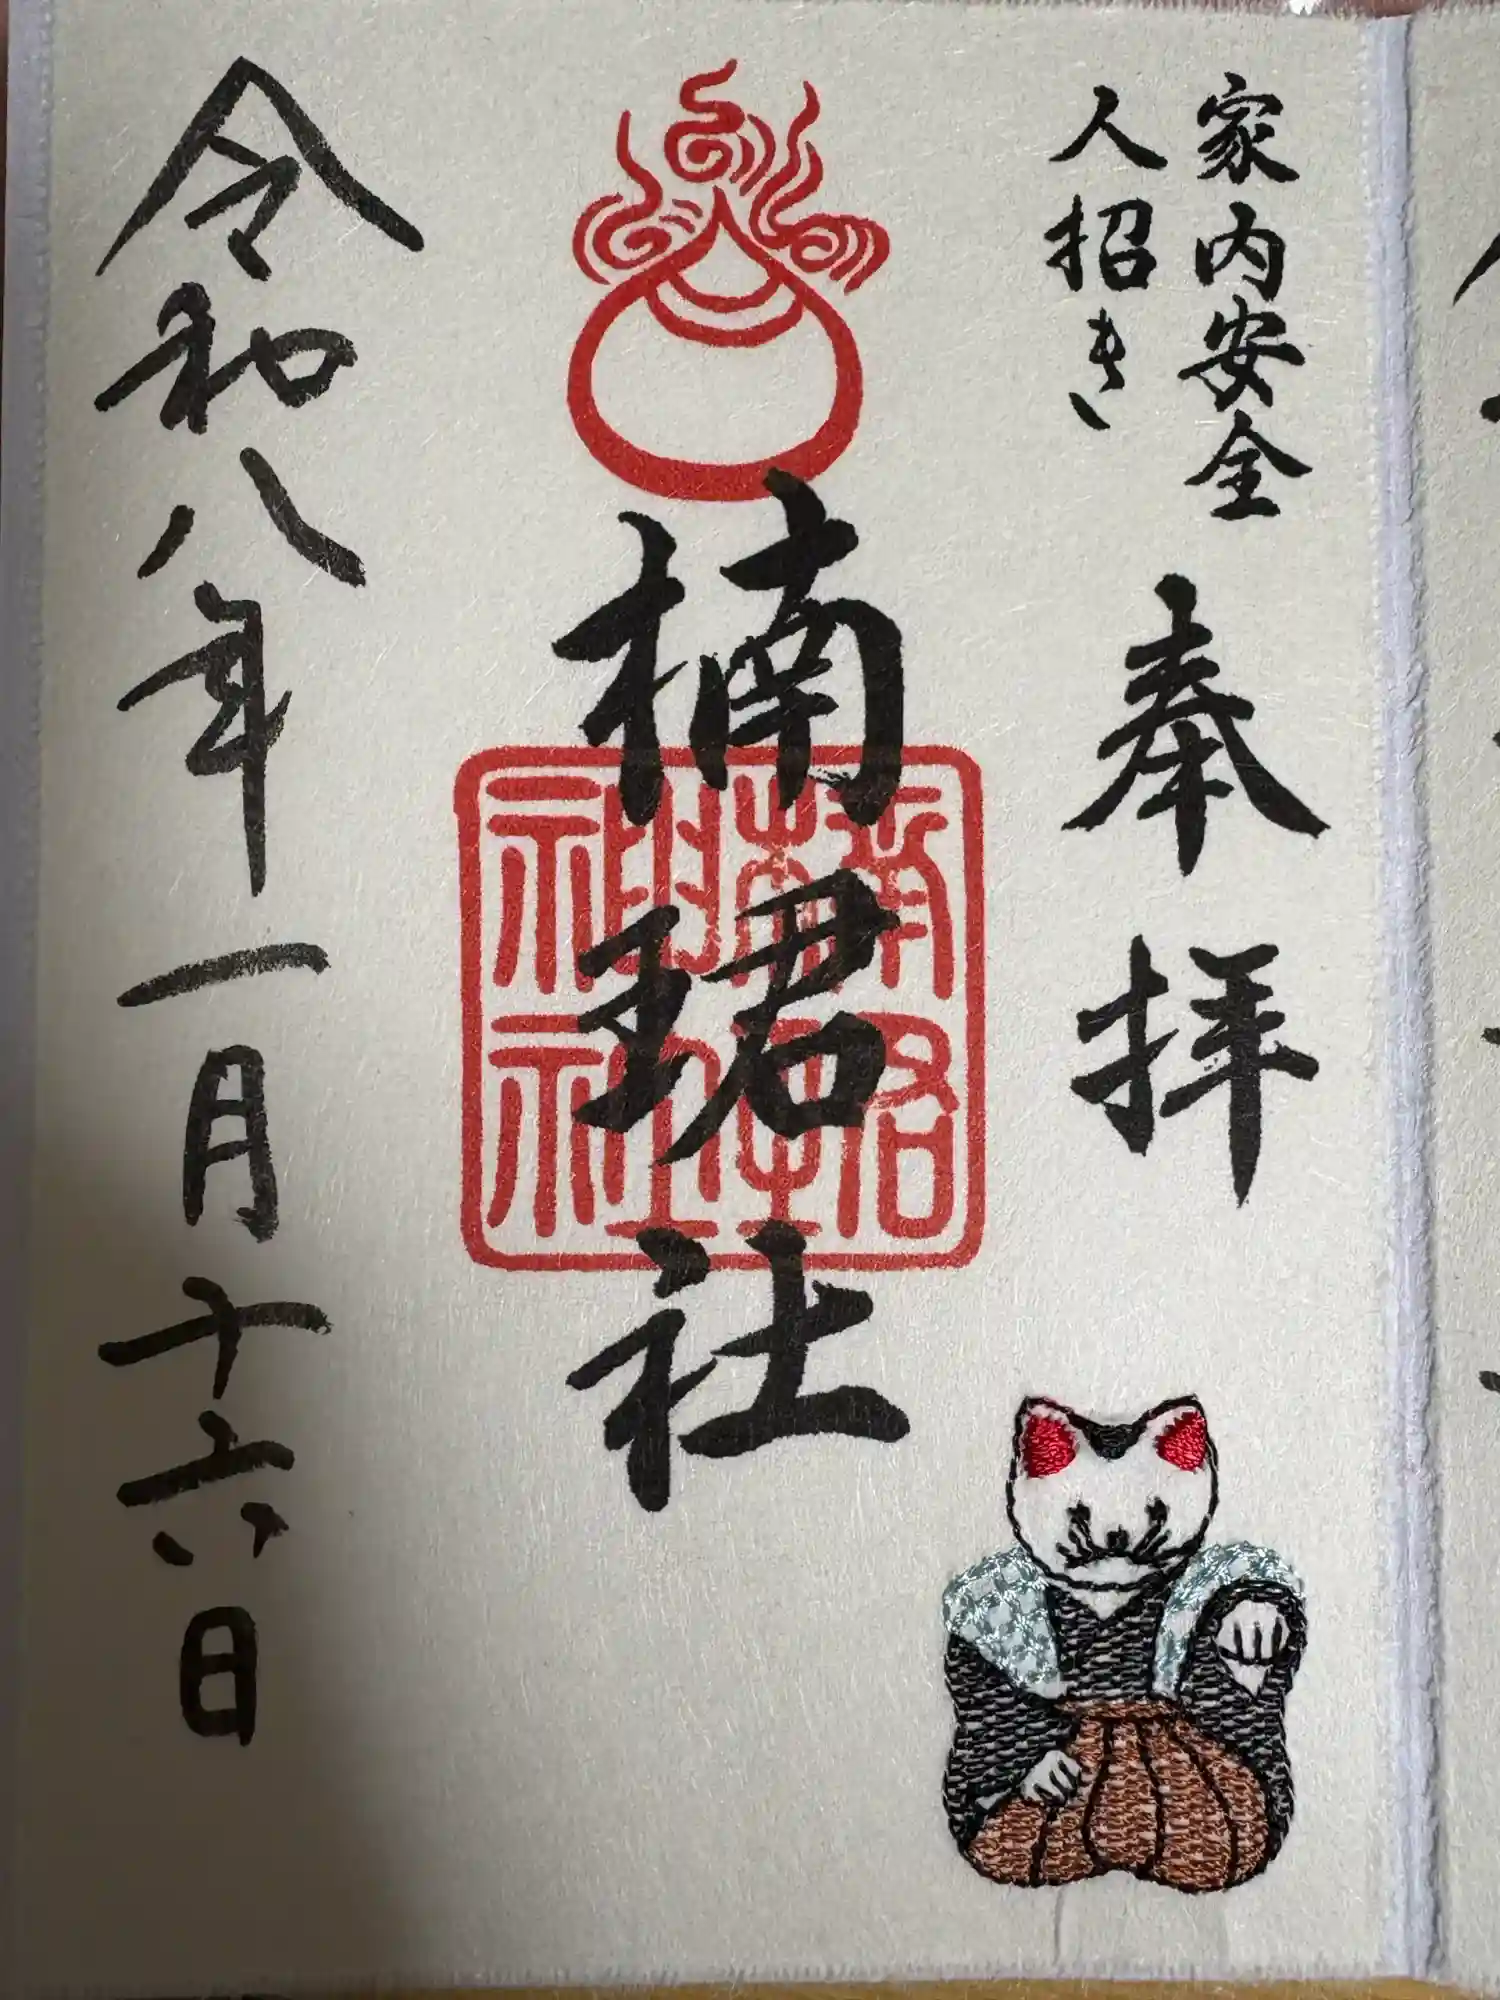 家内安全
人招き
奉拝
楠珺社
令和八年一月十六日